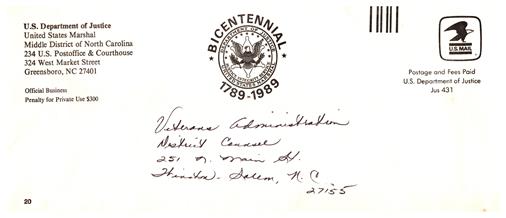 U.S. Department of Justice
United States Marshal
Middle District of North Carolina
234 U.S. Postoffice & Courthouse
324 West Market Street
Greensboro, NC 27401
Official Business
Penalty for Private Use $300
BICENTENNIAL
1789-1989
U.S. MAIL
Postage and Fees Paid
U.S. Department of Justice
Jus 431
Veterans Administration
District Counsel
251 N. Main St.
Winston-Salem, N.C
27155
20